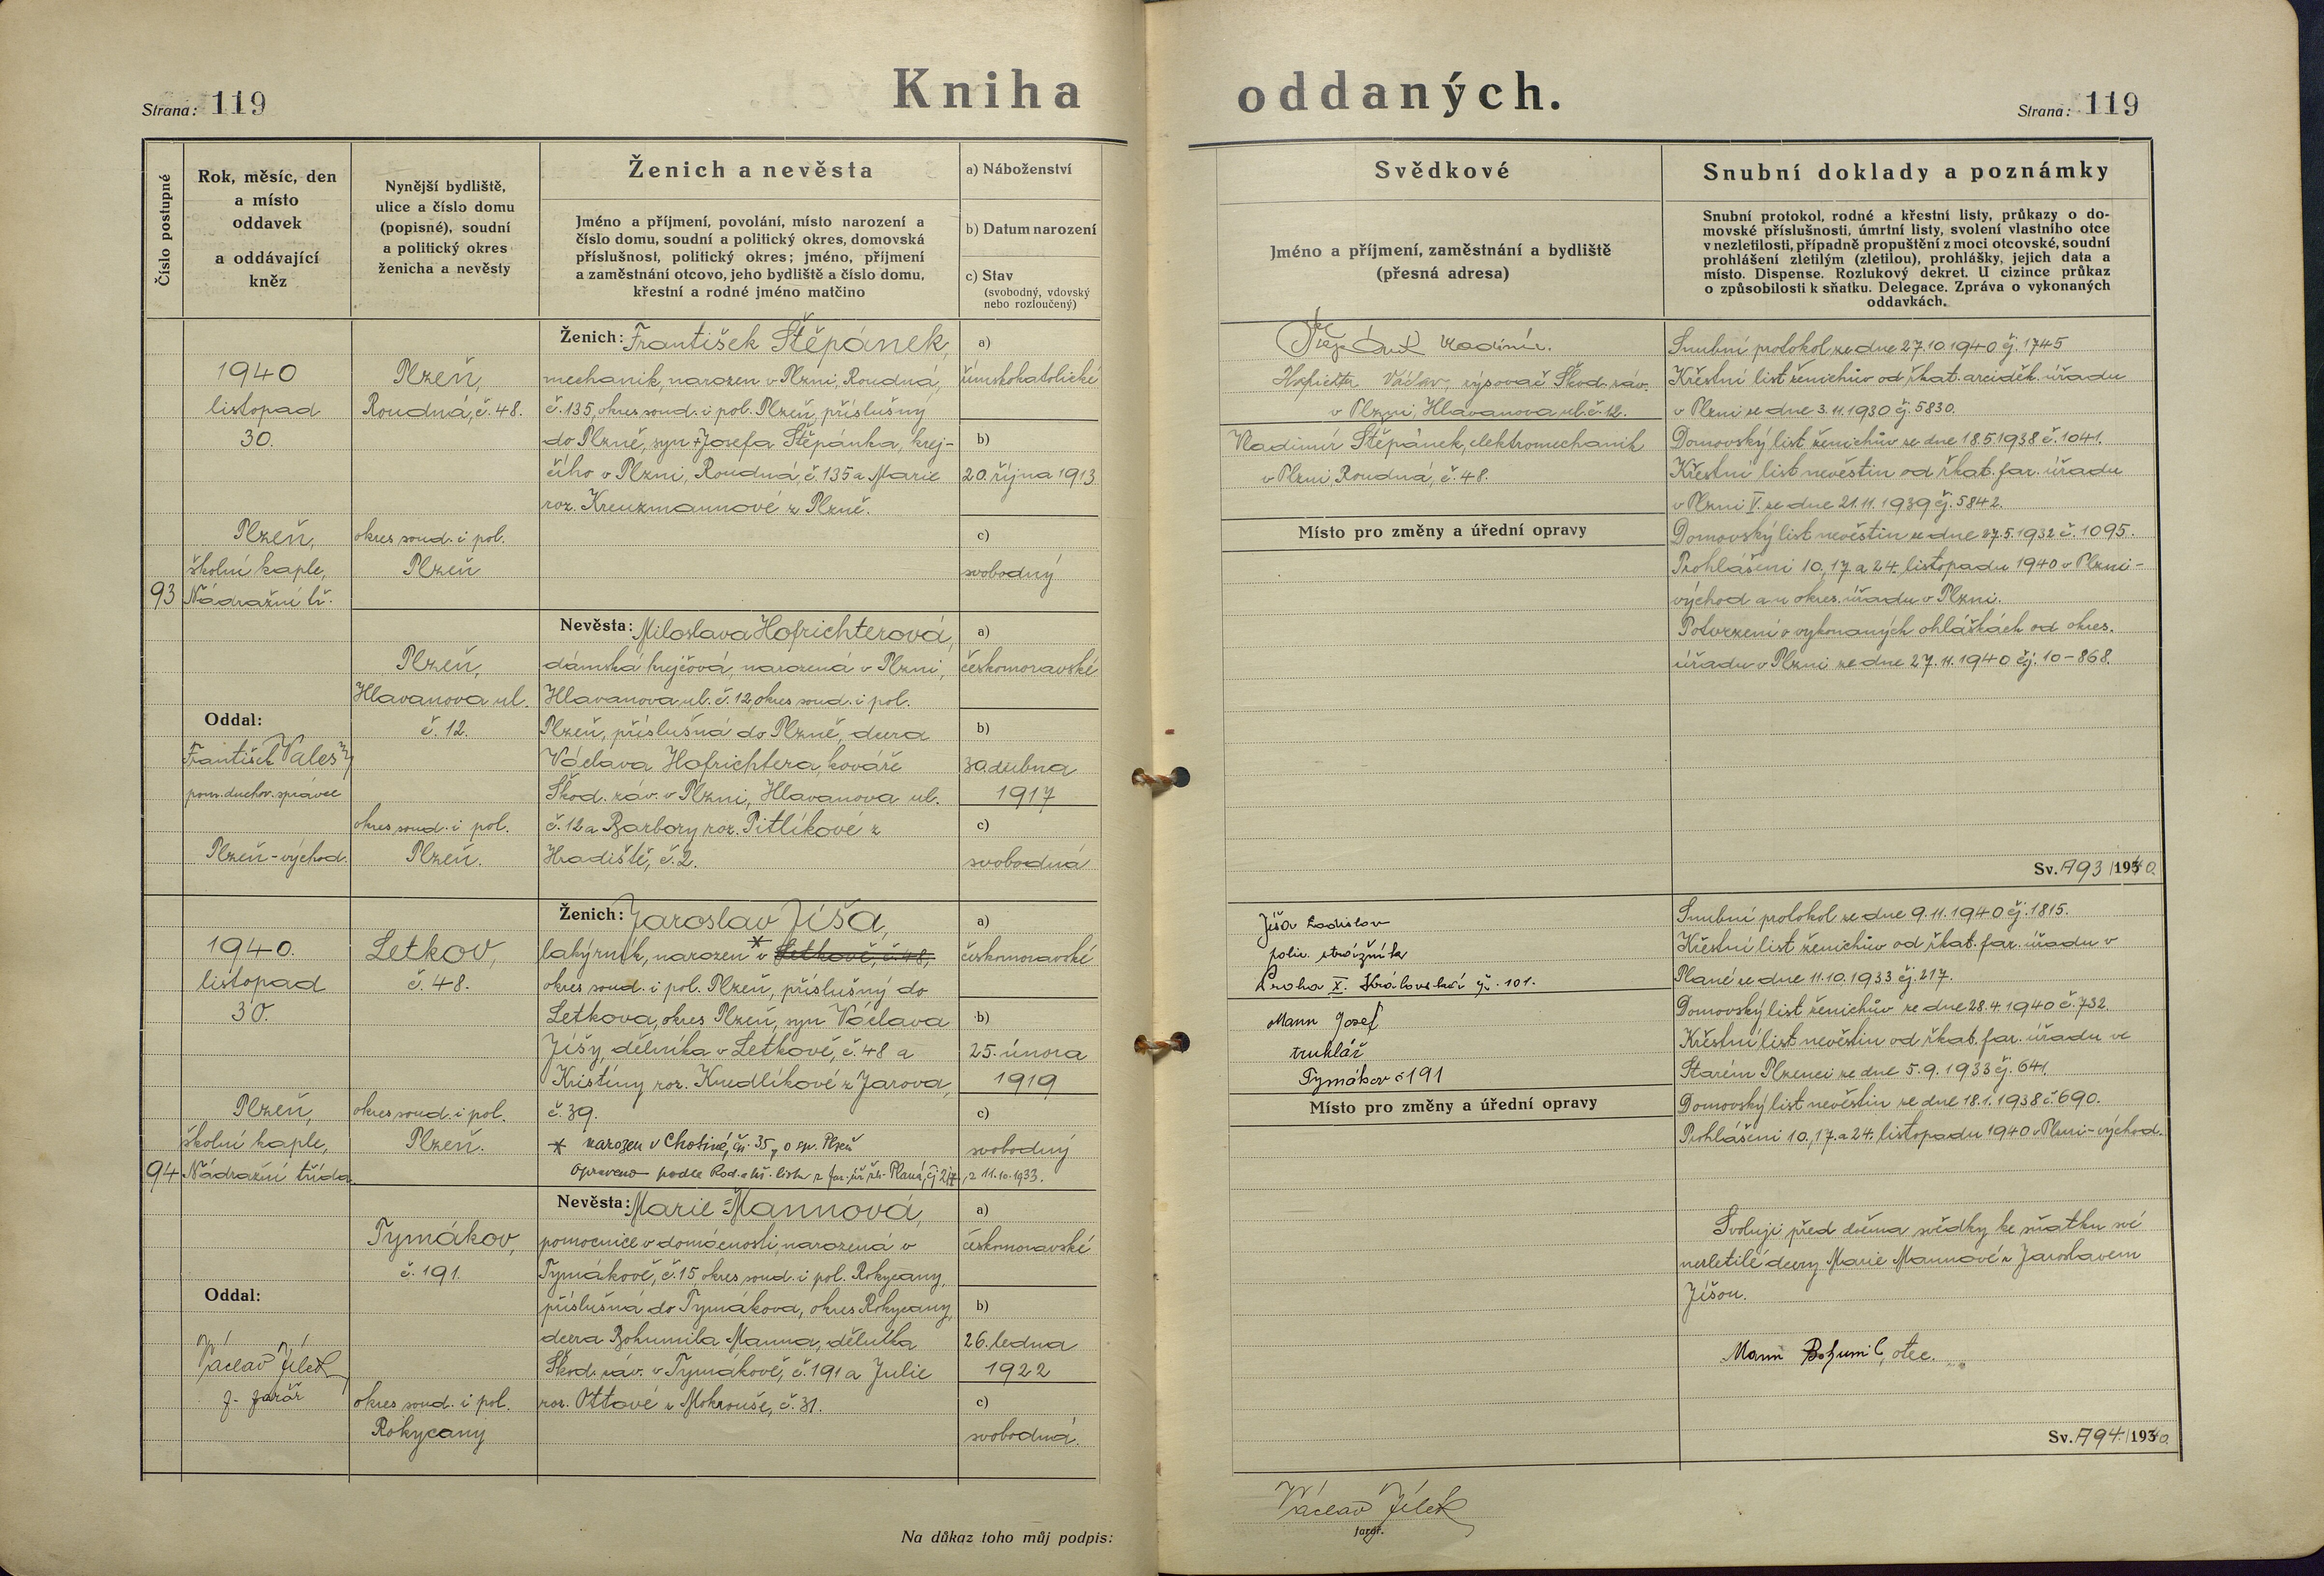 Kniha oddaných.
Strana: 119
Strana: 119
Číslo postupné
Rok, měsíc, den
a místo
oddavek
a oddávající
kněz
Nynější bydliště,
ulice a číslo domu
(popisné), soudní
a politický okres
ženicha a nevěsty
Ženich a nevěsta
Jméno a příjmení, povolání, místo narození a
číslo domu, soudní a politický okres, domovská
příslušnost, politický okres; jméno, příjmení
a zaměstnání otcovo, jeho bydliště a číslo domu,
křestní a rodné jméno matčino
a) Náboženství
b) Datum narození
c) Stav
(svobodný, vdovský
nebo rozloučený)
Svědkové
Jméno a příjmení, zaměstnání a bydliště
(přesná adresa)
Snubní doklady a poznámky
Snubní protokol, rodné a křestní listy, průkazy o do-
movské příslušnosti, úmrtní listy, svolení vlastního otce
v nezletilosti, případně propuštění z moci otcovské, soudní
prohlášení zletilým (zletilou), prohlášky, jejich data a
místo. Dispense. Rozlukový dekret. U cizince průkaz
o způsobilosti k sňatku. Delegace. Zpráva o vykonaných
oddavkách.
93
1940
listopad
30.
Plzeň,
školní kaple,
Nádražní tř.
Oddal:
František Valeš
pom. duchov. správce
Plzeň-východ.
Plzeň,
Roudná, č. 48.
okres soud. i pol.
Plzeň
Plzeň,
Hlavanova ul.
č. 12.
okres soud. i pol.
Plzeň.
Ženich: František Štěpánek,
mechanik, narozen v Plzni, Roudná,
č. 135, okres soud. i pol. Plzeň, příslušný
do Plzně, syn +Josefa Štěpánka, krej-
čího v Plzni, Roudná, č. 135 a Marie
roz. Kreuzmannové z Plzně.
a)
římskokatolické
b)
20. října 1913
c)
svobodný
Nevěsta: Miloslava Hofrichterová,
dámská krejčová, narozená v Plzni,
Hlavanova ul. č. 12, okres soud. i pol.
Plzeň, příslušná do Plzně, dcera
Václava Hofrichtera, kováře
Škod. záv. v Plzni, Hlavanova ul.
č. 12 a Barbory roz. Pitlíkové z
Hradiště, č. 2.
a)
českomoravské
b)
30. dubna
1917
c)
svobodná
Vladimír.
Václav, rýsovač Škod. záv.
v Plzni, Hlavanova ul. č. 12.
Vladimír Štěpánek, elektromechanik
v Plzni, Roudná, č. 48.
Místo pro změny a úřední opravy
Snubní protokol ze dne 27.10.1940 čj. 1745
Křestní list ženichův od řkat. arciděk. úřadu
v Plzni ze dne 3.11.1930 čj. 5830.
Domovský list ženichův ze dne 18.5.1938 č. 1041.
Křestní list nevěstin od řkat. far. úřadu
v Plzni V. ze dne 21.11.1939 čj. 5842.
Domovský list nevěstin ze dne 27.5.1932 č. 1095.
Prohlášeni 10., 17. a 24. listopadu 1940 v Plzni-
východ a u okres. úřadu v Plzni.
Potvrzení o vykonaných ohláškách od okres.
úřadu v Plzni ze dne 27.11.1940 čj. 10-868.
Sv. A93/1940.
94
1940.
listopad
30.
Plzeň,
školní kaple,
Nádražní třída
Oddal:
Václav Jílek
f. farář
Letkov,
č. 48.
okres soud. i pol.
Plzeň.
Tymákov,
č. 191.
okres soud. i pol.
Rokycany
Ženich: Jaroslav Jíša,
lakýrník, narozen v * Letkově, č. 48,
okres soud. i pol. Plzeň, příslušný do
Letkova, okres Plzeň, syn Václava
Jíšy, dělníka v Letkově, č. 48 a
Kristiny roz. Knedlíkové z Jarova,
č. 39.
* narozen v Chotiné, čp. 35, o sp. Plzeň
Opraveno podle Rod. a kř. listu z far. úř. řk. Planá, čj 217, z 11.10.1933.
a)
českomoravské
b)
25. února
1919
c)
svobodný
Nevěsta: Marie Mannová,
pomocnice v domácnosti, narozená v
Tymákově, č. 15, okres soud. i pol. Rokycany,
příslušná do Tymákova, okres Rokycany,
dcera Bohumila Manna, dělníka
Škod. záv. v Tymákově, č. 191 a Julie
roz. Ottové z Mokrouše, č. 31.
a)
českomoravské
b)
26. ledna
1922
c)
svobodná.
Jíša Ladislav
polic. strážník
Praha X. Královská čp. 101.
Mann Josef
truhlář
Tymákov č 191
Místo pro změny a úřední opravy
Snubní protokol ze dne 9.11.1940 čj. 1815.
Křestní list ženichův od řkat. far. úřadu v
Plané ze dne 11.10.1933 čj. 217.
Domovský list ženichův ze dne 28.4.1940 č. 732.
Křestní list nevěstin od řkat. far. úřadu ve
Starém Plzenci ze dne 5.9.1933 čj. 641.
Domovský list nevěstin ze dne 18.1.1938 č. 690.
Prohlášeni 10., 17. a 24. listopadu 1940 v Plzni-východ.
Svoluji před dvěma svědky ke sňatku své
nezletilé dcery Marie Mannové s Jaroslavem
Jíšou.
Mann Bohumil, otec.
Sv. A94./1940.
Na důkaz toho můj podpis:
Václav Jílek
farář.